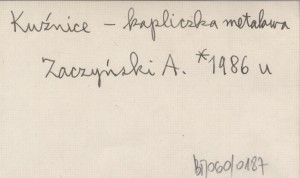 Kuźnice – kapliczka metalowa
Zaczyński A. *1986 u
B/060/0187